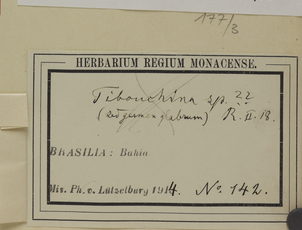 177/3
HERBARIUM REGIUM MONACENSE.
Tibouchina sp. ??
glabrum) R. II. 18.
BRASILIA: Bahia
Mis. Ph. v. Lützelburg 1914. No. 142.